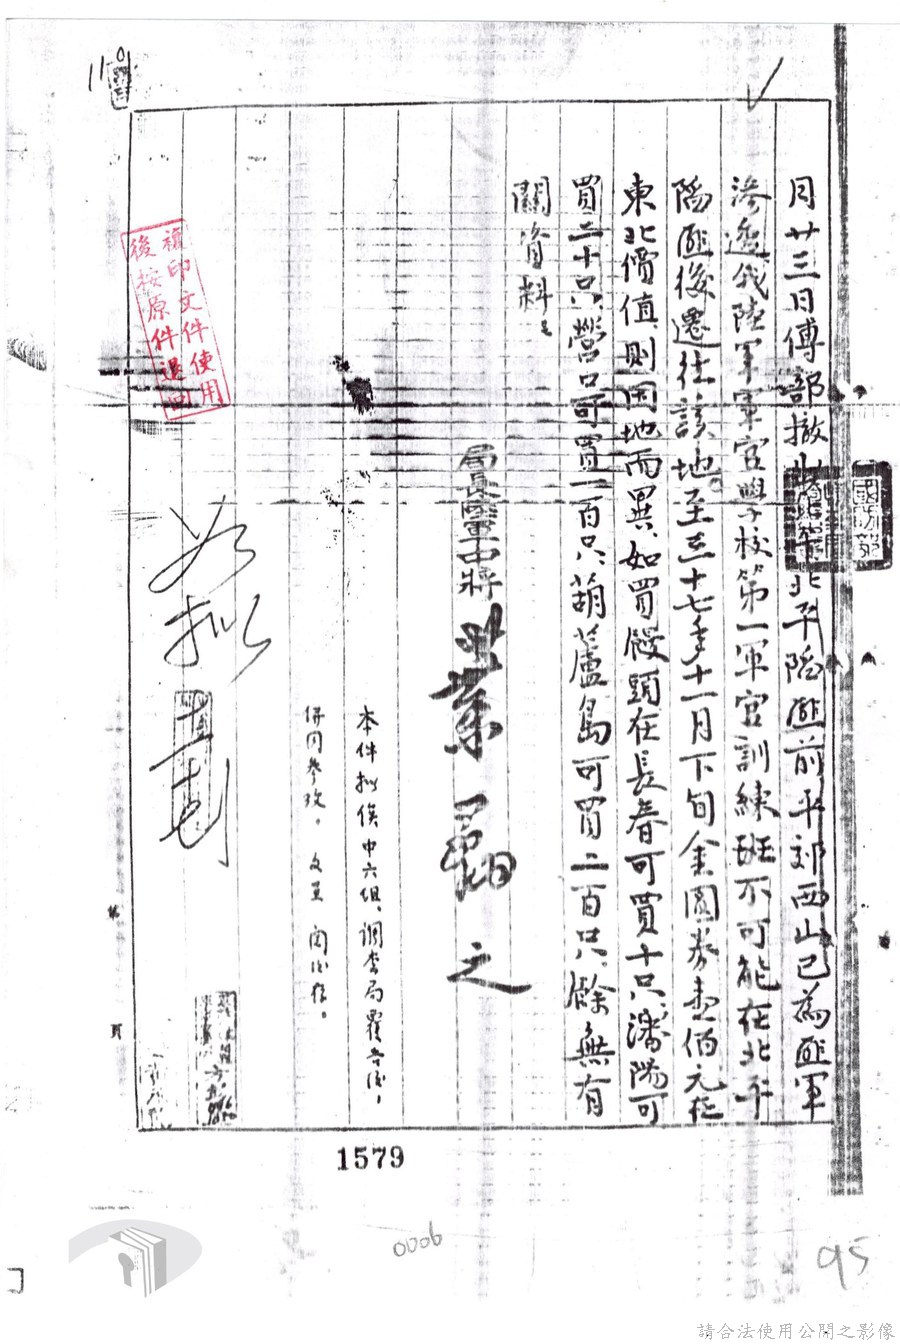 月廿三日傅部撤出北平陷匪前平郊西山已為匪軍
滲透我陸軍軍官學校第一軍官訓練班不可能在北平
陷匪後遷往該地。至三十七年十一月下旬金圓券壹佰元在
東北價值則因地而異、如買饅頭在長春可買十只、瀋陽可
買二十只、營口可買一百只、葫蘆島可買二百只、餘無有
關資料。
局長陸軍中將葉翔之
本件拟俟中六組、調查局覆告後,
併同參攷。文呈閱後存。
如拟
複印文件使用
後按原件退回
國防部
第 頁
1579
0006
95
11
請合法使用公開之影像